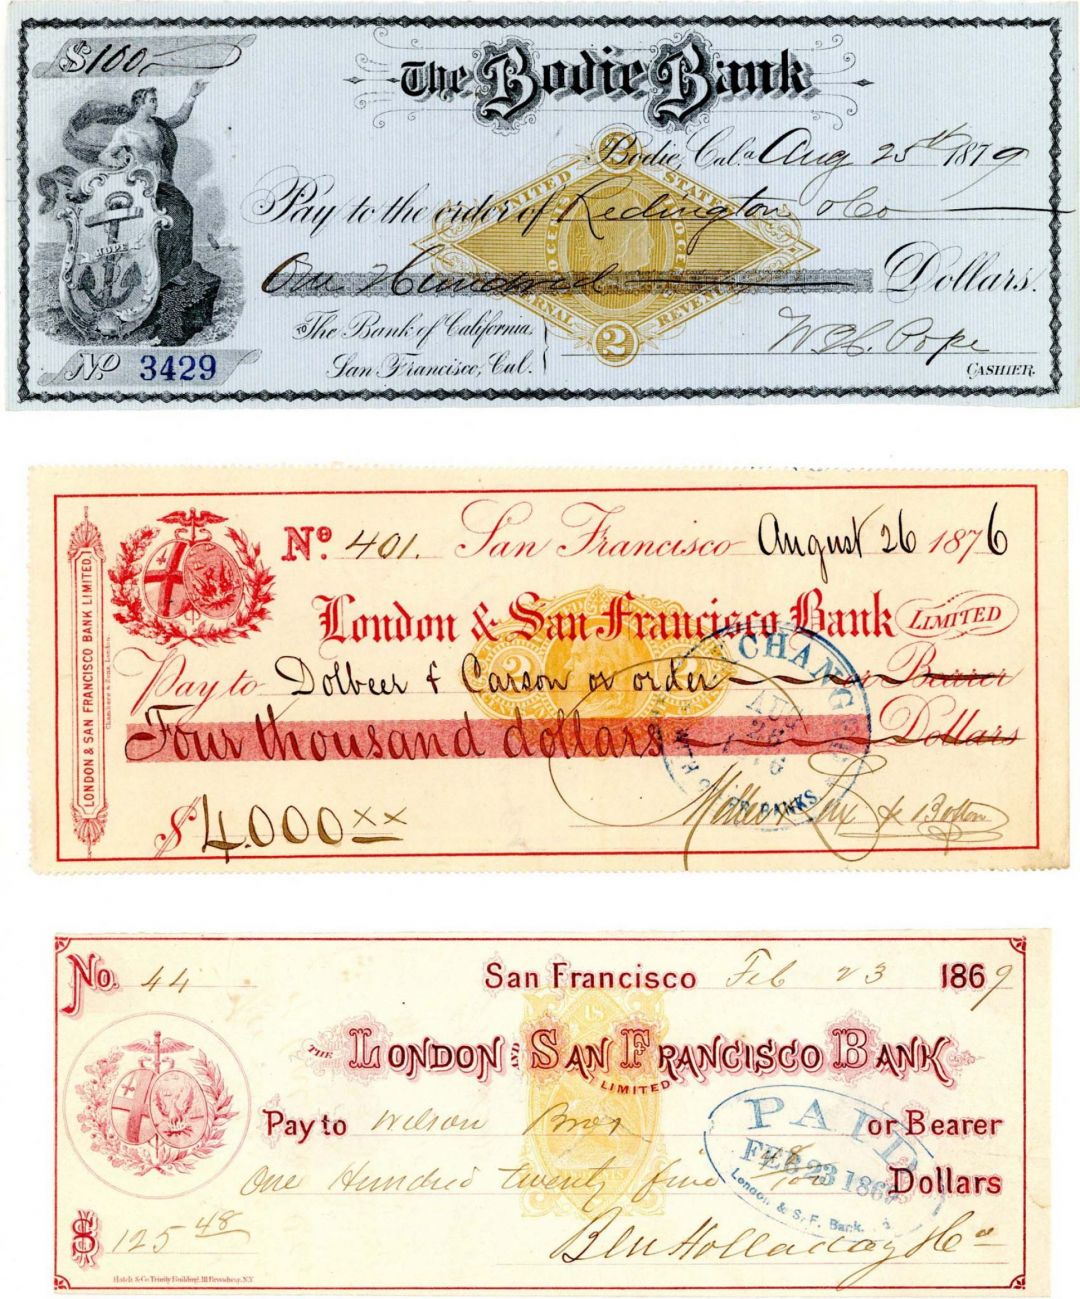 $100
The Bodie Bank
Bodie, Cal.a Aug 25th 1879
Pay to the order of Redington & Co
One Hundred Dollars.
UNITED STATES
INTERNAL REVENUE
2
2
HOPE
TO The Bank of California,
San Francisco, Cal.
W. H. Pope
CASHIER.
No 3429
LONDON & SAN FRANCISCO BANK LIMITED
No. 401. San Francisco August 26 1876
London & San Francisco Bank LIMITED
Pay to Dolbeer & Carson or order or Bearer
Four thousand dollars Dollars
2 2
CHANGE
AUG
26
BANKS
$4,000 xx
Miller Lux &
No. 44 San Francisco Feb 23 1869
THE LONDON AND SAN FRANCISCO BANK
LIMITED
Pay to Wilson Bros or Bearer
One Hundred twenty five 48/100 Dollars
PAID
FEB 23 1869
London & S.F. Bank,
$125 48 Ben Holladay & Co
Hatch & Co Trinity Building, 111 Broadway, N.Y.